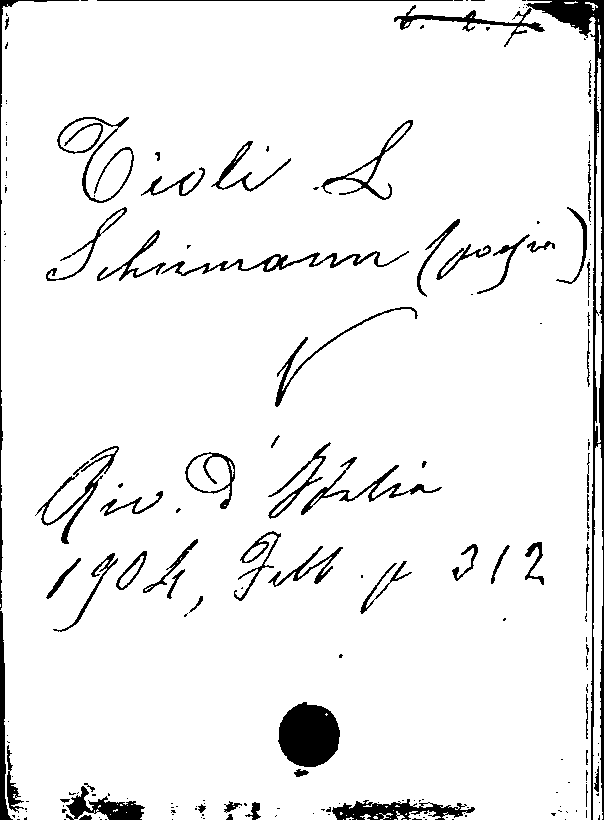 6. 2. 7
Tioli L
Schumann (poesia)
V
Riv. d'Italia
1904, Febb. p 312